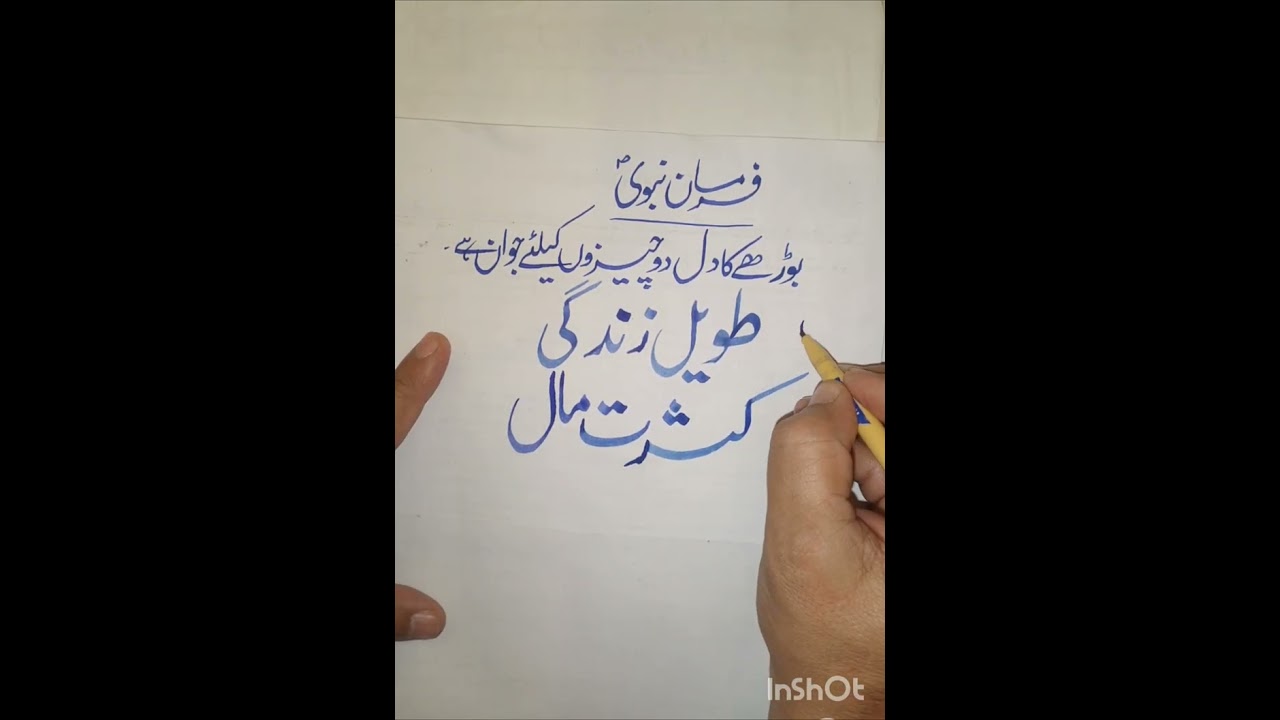 فرمان نبویؐ
بوڑھے کا دل دو چیزوں کیلئے جوان ہے۔
طویل زندگی
کثرت مال
InShOt